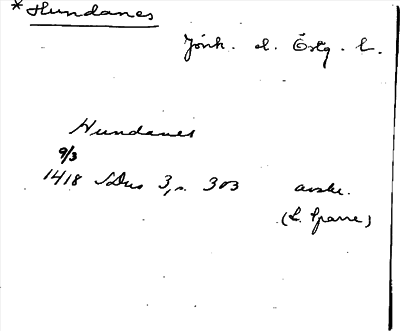 *Hundanes
Jönk. el. Östg. l.
Hundanes
9/3
1418 SDns 3, s. 303 avskr.
(L. Sparre)